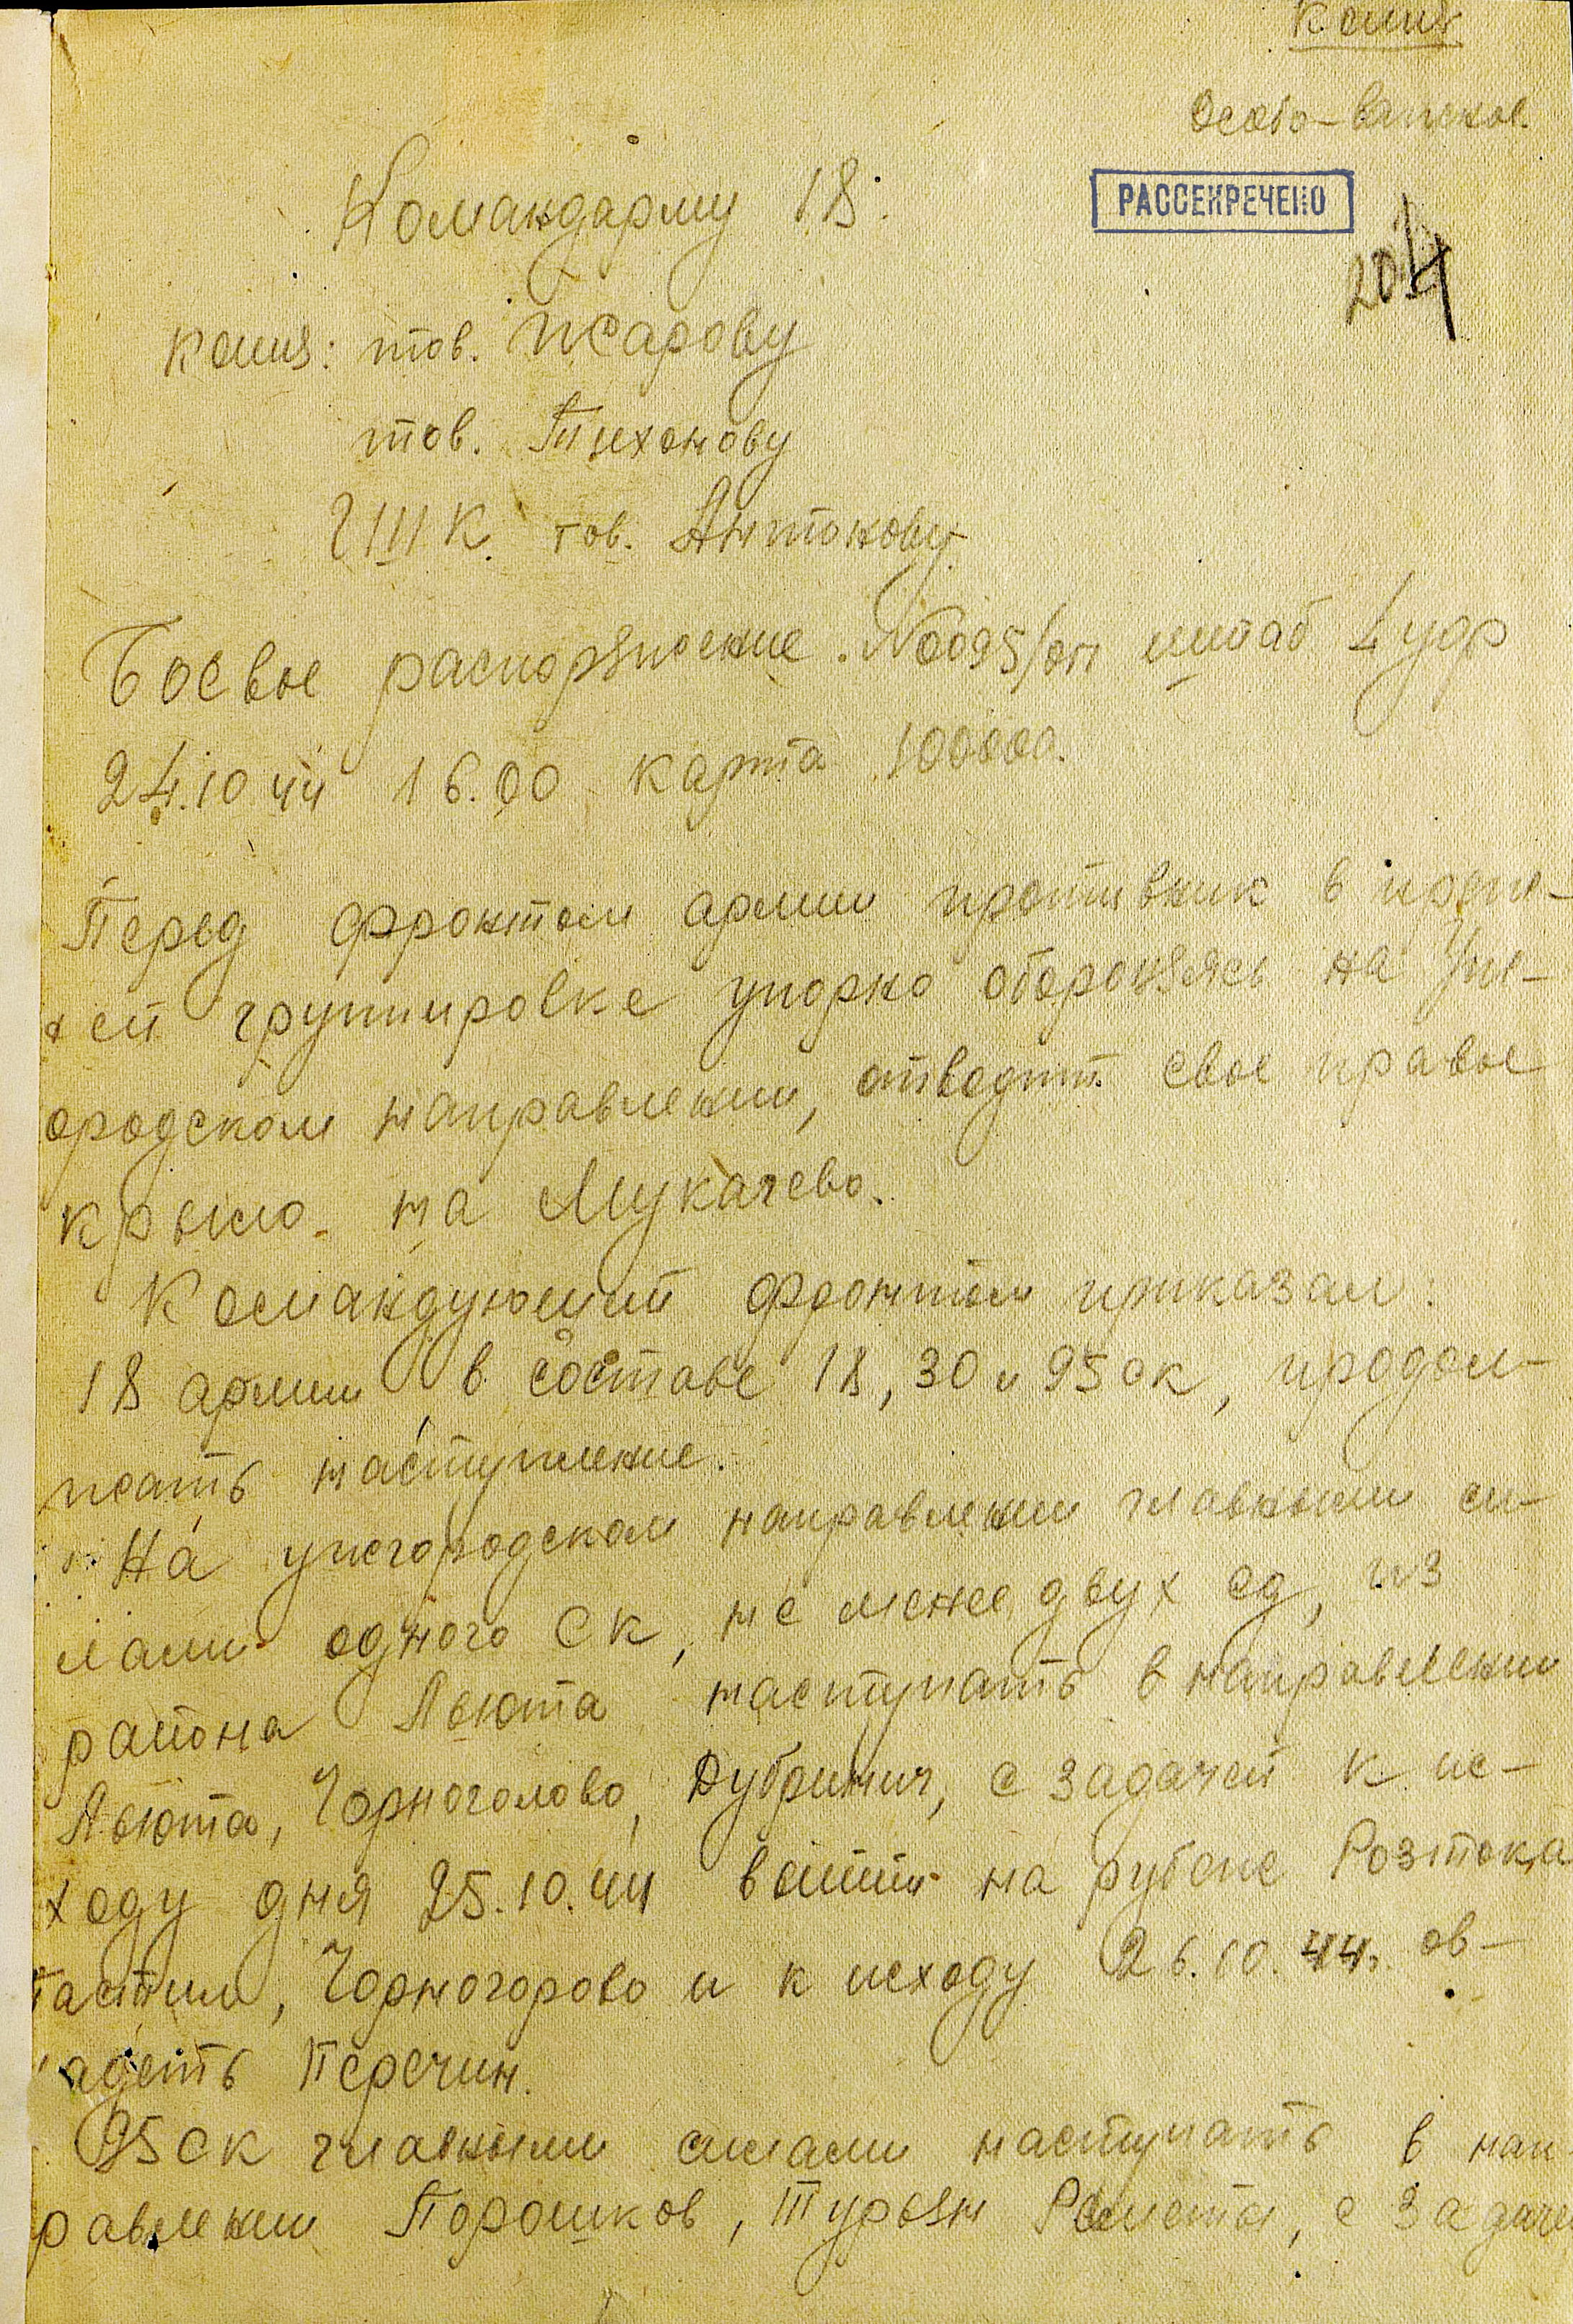 Копия
Особо-важное.
Командарму 18.
РАССЕКРЕЧЕНО
204
копия: тов. Жарову
тов. Тихонову
ГШК. тов. Антонову
Боевое распоряжение №0095/оп штаб 4 уфр
24.10.44 16.00 карта 100000.
Перед фронтом армии противник в преж-
ней группировке упорно обороняясь на Уж-
ородском направлении, отводит свое правое
крыло на Мукачево.
Командующий фронтом приказал:
18 армии в составе 18, 30 и 95 ск, продол-
жать наступление.
На ужгородском направлении главными си-
лами одного ск, не менее двух сд, из
района Льюта наступать в направлении
Льюта, Чорноголово, Дубринич, с задачей к ис-
ходу дня 25.10.44 выйти на рубеже Розтока
Пастили, Чорногорово и к исходу 26.10.44г. ов-
ладеть Перечин.
95 ск главными силами наступать в нап
равлении Порошков, Турьян Реметы, с задаче